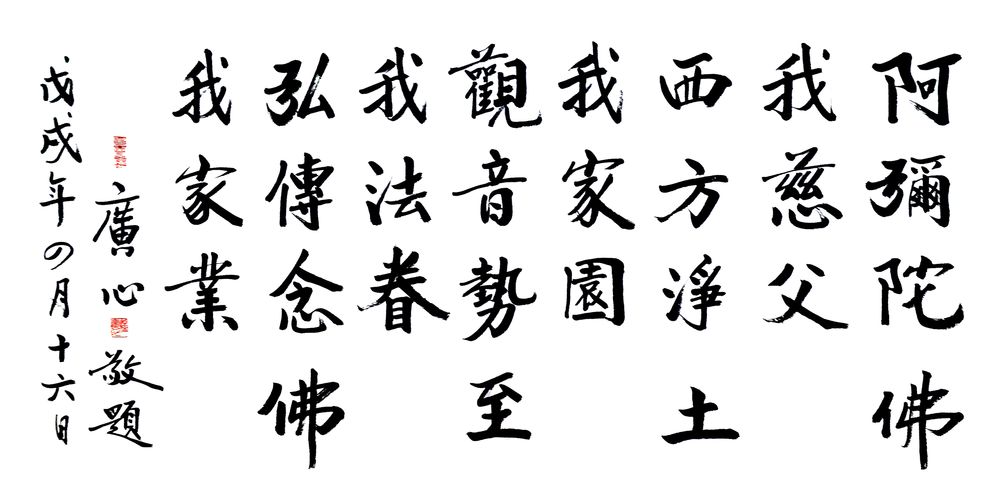 阿彌陀佛
我慈父
西方淨土
我家園
觀音勢至
我法眷
弘傳念佛
我家業
廣心敬題
戊戌年四月十六日